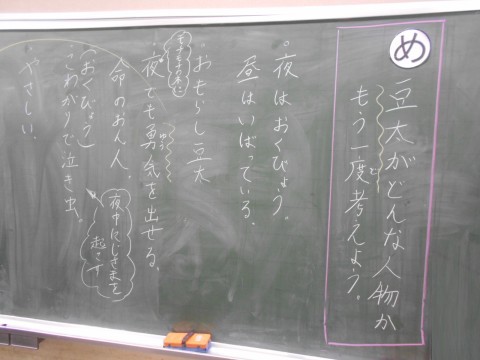 め
豆太がどんな人物か
もう一度考えよう。
・夜はおくびょう。
昼はいばっている。
・おもらし豆太
・夜でも勇気を出せる。
ゆう
命のおん人。
夜中にじさまを
起こす
(おくびょう)
・こわがりで泣き虫。
・やさしい。